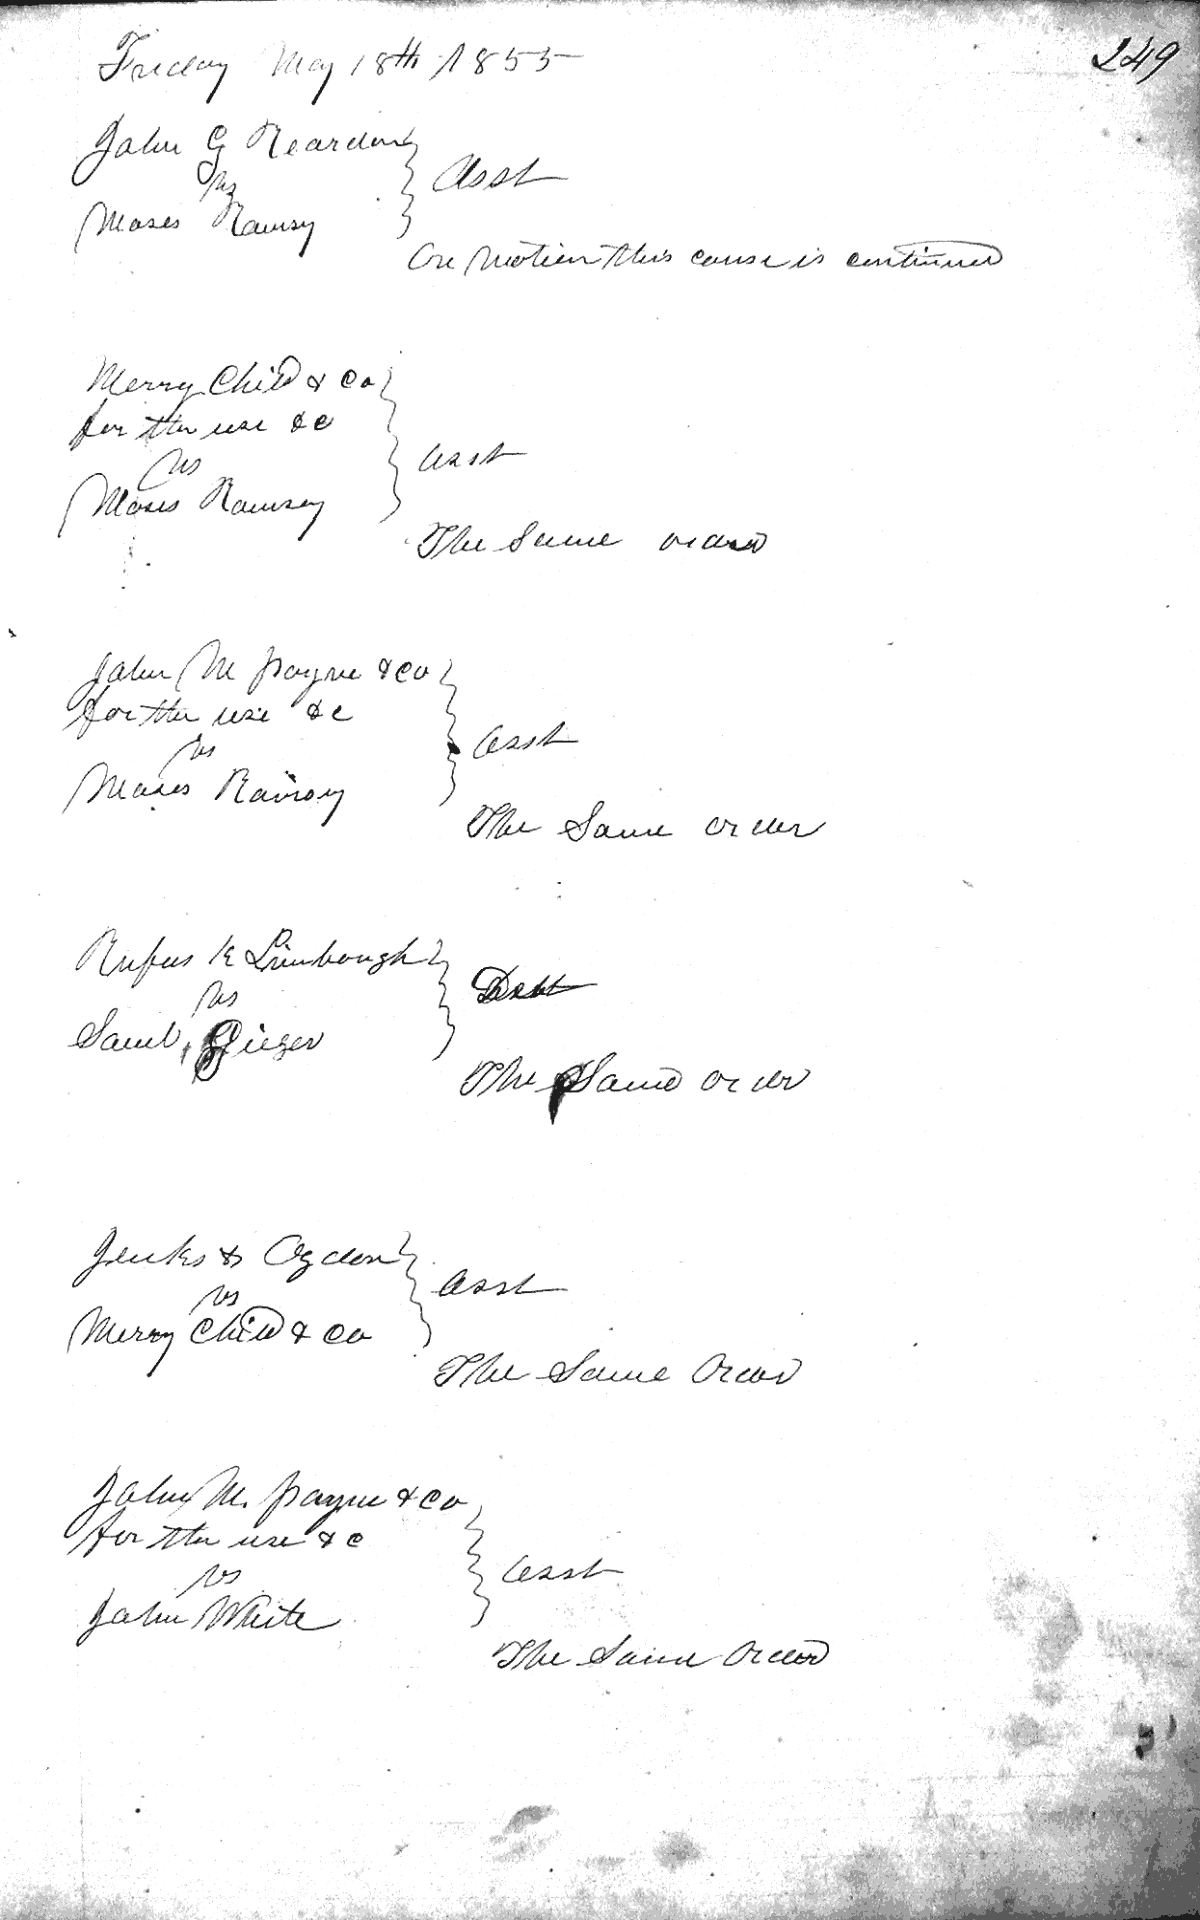 Friday May 18th 1855
249
John G Reardon
vs
Asst
Moses Ramsy
On Motion this cause is continued
Merry Child & Co
for the use &c
vs
Asst
Moses Ramsey
The Same order
John M Payne & Co
for the use &c
vs
Asst
Moses Ramsy
The Same order
Rufus K Limbaugh
vs
Debt
Saml Gieger
The Same order
Jenks & Ogden
vs
Asst
Merry Child & Co
The Same Order
John M. Payne & Co
for the use &c
vs
Asst
John White
The Same Order